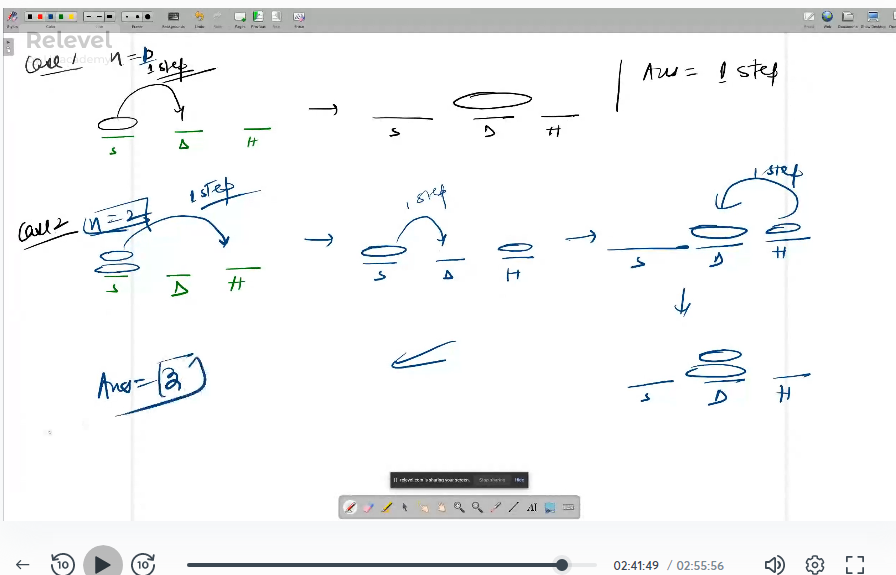 Relevel
academy
Case 1 n = 1
1 step
Ans = 1 step
S D H
S D H
Case 2 n = 2
1 step
1 step
1 step
S D H
S D H
S D H
Ans = 3
S D H
relevel.com is sharing your screen. Stop sharing Hide
10 10 02:41:49 / 02:55:56